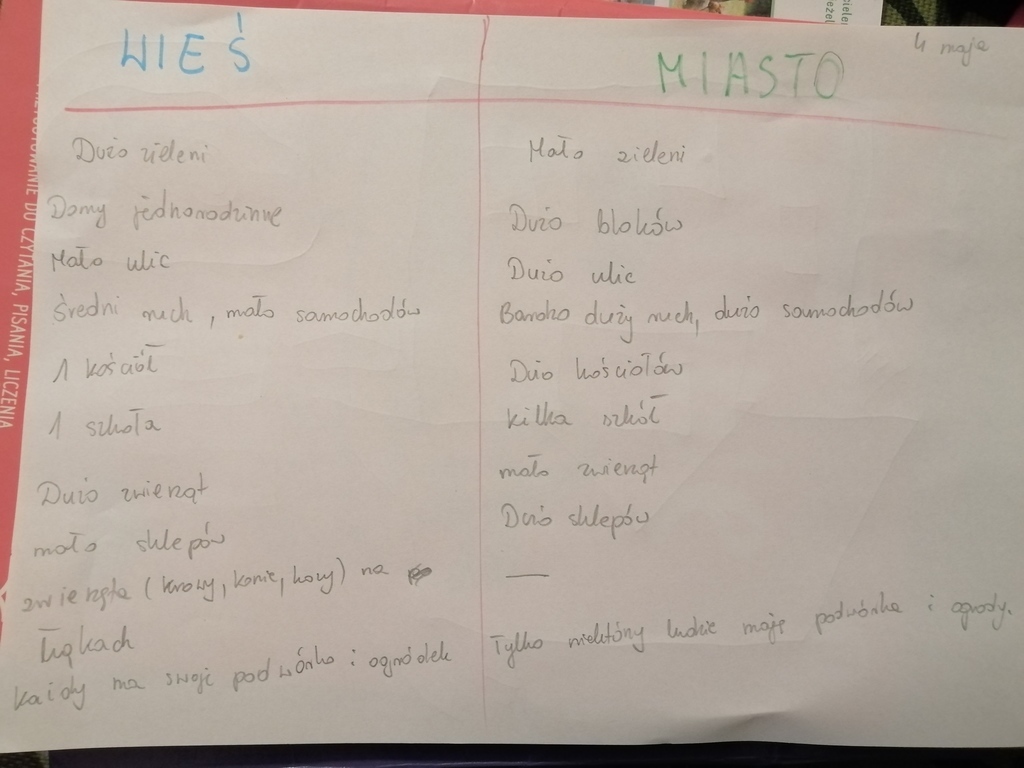 WIEŚ
MIASTO
4 maja
Dużo zieleni
Mało zieleni
Domy jednorodzinne
Dużo bloków
Mało ulic
Dużo ulic
Średni ruch, mało samochodów
Bardzo duży ruch, dużo samochodów
1 kościół
Dużo kościołów
1 szkoła
kilka szkół
Dużo zwierząt
mało zwierząt
mało sklepów
Dużo sklepów
zwierzęta (krowy, konie, kozy) na
—
Łąkach
każdy ma swoje podwórko i ogródek
Tylko niektórzy ludzie mają podwórka i ogrody.
DO CZYTANIA, PISANIA, LICZENIA